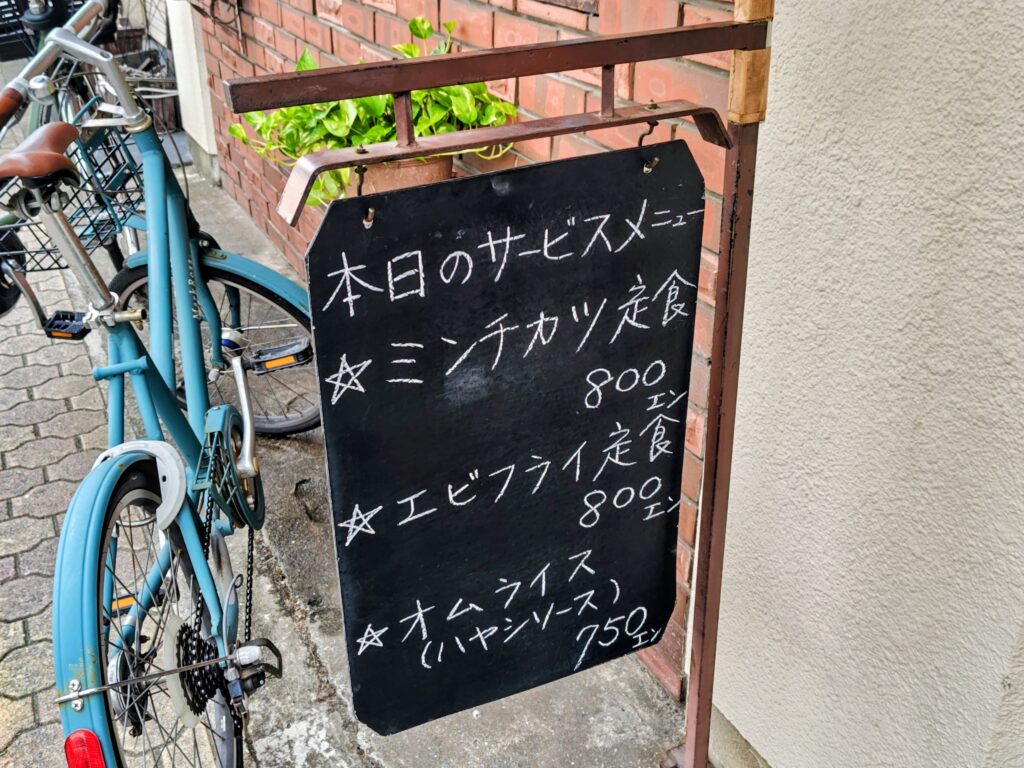 本日のサービスメニュー
☆ミンチカツ定食
800エン
☆エビフライ定食
800エン
☆オムライス
(ハヤシソース)
750エン